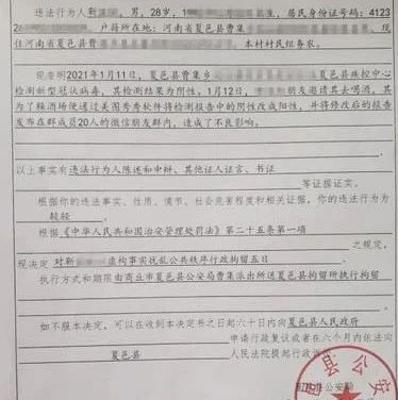 违法行为人靳 ，男，28岁，1 生，居民身份证号码：4123
，户籍所在地：河南省夏邑县曹集 ，现
住河南省夏邑县曹 ，本村村民组务农。
现查明2021年1月11日，夏邑县曹集乡 夏邑县疾控中心
检测新型冠状病毒，其检测结果为阴性，1月12日， 朋友邀请其去喝酒，其
为了躲酒场便通过美图秀秀软件将检测报告中的阴性改成阳性，并将修改后的报告
发布在群成员20人的微信朋友群内，造成了不良影响。
以上事实有违法行为人陈述和申辩、其他证人证言、书证
等证据证实。
根据你的违法事实、性质、情节、社会危害程度和相关证据，你的违法行为为
较轻。
根据《中华人民共和国治安管理处罚法》第二十五条第一项
之规定，
现决定 对靳 虚构事实扰乱公共秩序行政拘留五日
执行方式和期限由商丘市夏邑县公安局曹集派出所送夏邑县拘留所执行拘留
如不服本决定，可以在收到本决定书之日起六十日内向夏邑县人民政府
申请行政复议或者在六个月内依法向
夏邑县 人民法院提起行政
邑县公安